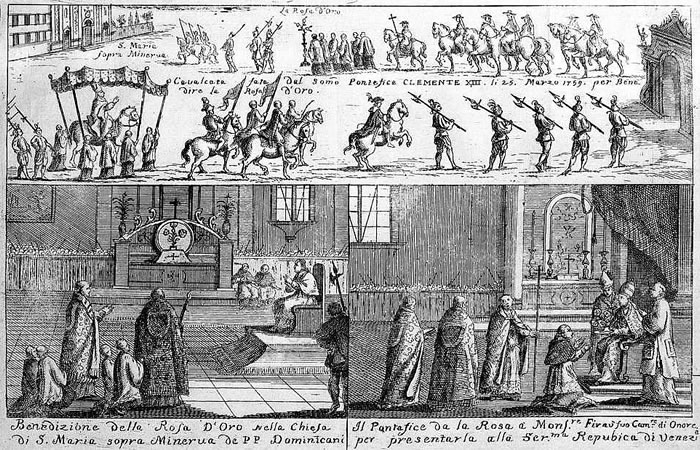 La Rosa d'Oro
S. Maria
sopra Minerva
Cavalcata fata Dal Somo Pontefice CLEMENTE XIII. li 25. Marzo 1759. per Bene
dire la Rosa D'Oro.
Benedizione della Rosa D'Oro nella Chiesa
di S. Maria sopra Minerva de PP Dominicani
Il Pantafice da la Rosa a Mons.re Firau suo Cam.e di Onore
per presentarla alla Ser.ma Repubica di Venezia